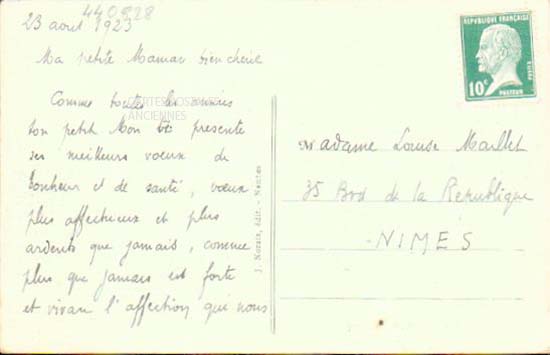 440828
23 août 1923
Ma petite Maman bien chérie
Comme toutes les années
ton petit Mon te présente
ses meilleurs voeux de
bonheur et de santé, voeux
plus affectueux et plus
ardents que jamais, comme
plus que jamais est forte
et vivan l'affection qui nous
CARTES POSTALES
ANCIENNES
J. Nozais, édit. - Nantes
RÉPUBLIQUE FRANÇAISE
POSTES
10c
PASTEUR
Madame Louise Maillet
35 Bvd de la République
NIMES